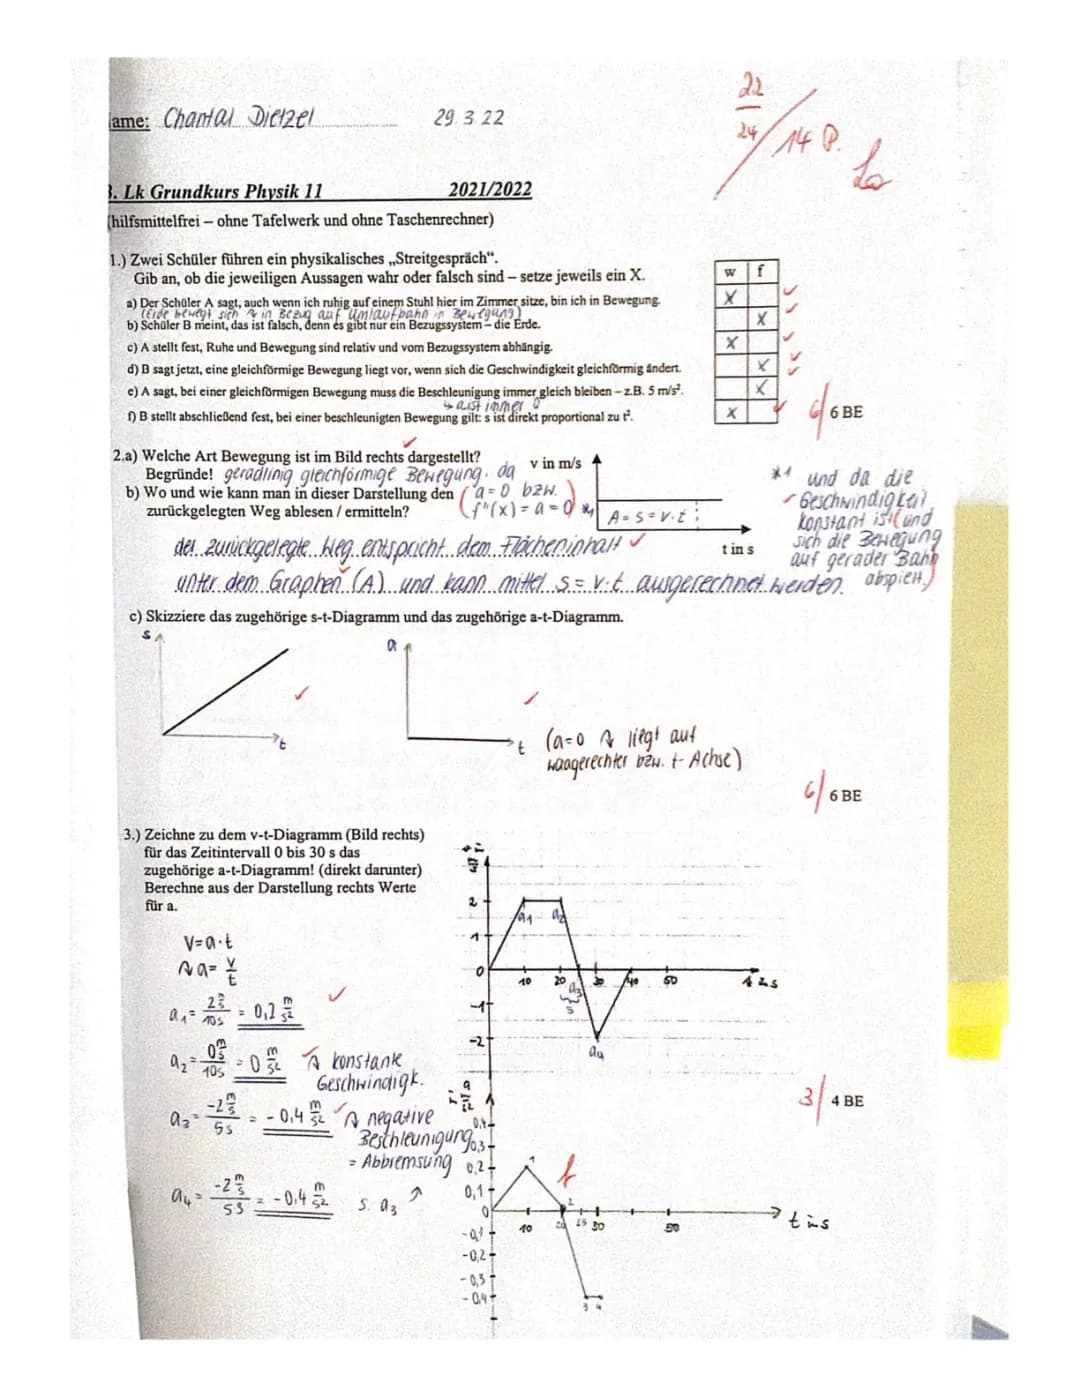 ame: Chantal Dietzel 29.3.22
22
24
/14 P.
3. Lk Grundkurs Physik 11 2021/2022
(hilfsmittelfrei – ohne Tafelwerk und ohne Taschenrechner)
1.) Zwei Schüler führen ein physikalisches „Streitgespräch“.
Gib an, ob die jeweiligen Aussagen wahr oder falsch sind – setze jeweils ein X.
w f
a) Der Schüler A sagt, auch wenn ich ruhig auf einem Stuhl hier im Zimmer sitze, bin ich in Bewegung. X
(Erde bewegt sich in Bezug auf Umlaufbahn in Bewegung)
b) Schüler B meint, das ist falsch, denn es gibt nur ein Bezugssystem – die Erde. X
c) A stellt fest, Ruhe und Bewegung sind relativ und vom Bezugssystem abhängig. X
d) B sagt jetzt, eine gleichförmige Bewegung liegt vor, wenn sich die Geschwindigkeit gleichförmig ändert. X
e) A sagt, bei einer gleichförmigen Bewegung muss die Beschleunigung immer gleich bleiben – z.B. 5 m/s². X
↳ a ist immer 0
f) B stellt abschließend fest, bei einer beschleunigten Bewegung gilt: s ist direkt proportional zu t². X
6/ 6 BE
2.a) Welche Art Bewegung ist im Bild rechts dargestellt?
Begründe! geradlinig gleichförmige Bewegung, da
b) Wo und wie kann man in dieser Darstellung den (a = 0 bzw.
zurückgelegten Weg ablesen / ermitteln? f''(x) = a = 0) *1
v in m/s
A = s = v·t
t in s
*1 und da die
Geschwindigkeit
konstant ist (und
sich die Bewegung
auf gerader Bahn
abspielt.)
der zurückgelegte Weg entspricht dem Flächeninhalt
unter dem Graphen (A) und kann mittel s = v·t ausgerechnet werden.
c) Skizziere das zugehörige s-t-Diagramm und das zugehörige a-t-Diagramm.
s
t
a
t
(a=0 liegt auf
waagerechter bzw. t-Achse)
6/ 6 BE
3.) Zeichne zu dem v-t-Diagramm (Bild rechts)
für das Zeitintervall 0 bis 30 s das
zugehörige a-t-Diagramm! (direkt darunter)
Berechne aus der Darstellung rechts Werte
für a.
2
1
0
-1
-2
10 20 30 40 50
a1 a2 a3 a4
5
V=a·t
a= v/t
a1= 2 m/s / 10s = 0,2 m/s²
a2= 0 m/s / 10s = 0 m/s² konstante
Geschwindigk.
a3= -2 m/s / 5s = -0,4 m/s² negative
Beschleunigung
= Abbremsung
a4= -2 m/s / 5s = -0,4 m/s² s. a3
3/ 4 BE
a in m/s²
0,4
0,3
0,2
0,1
0
-0,1
-0,2
-0,3
-0,4
10 20 25 30 50
t in s
1
2
3 4
f